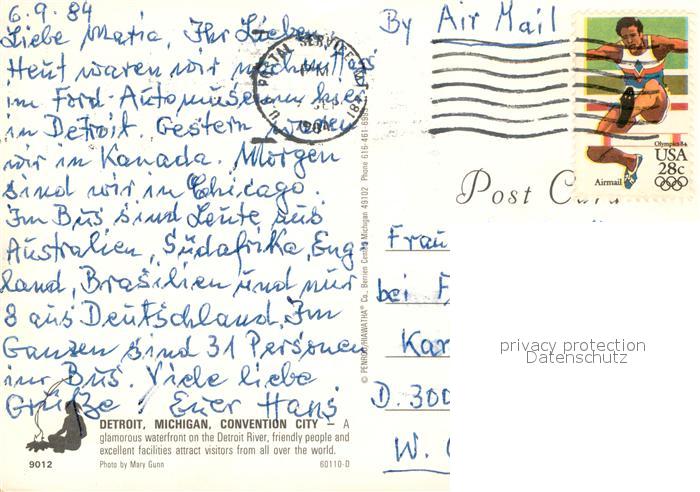 6.9.84
Liebe Maria, Ihr Lieben,
Heut waren wir
im Ford-Automuseum hier
in Detroit. Gestern waren
wir in Kanada. Morgen
sind wir in Chicago.
Im Bus sind Leute aus
Australien, Südafrika, Eng
land, Brasilien und nur
8 aus Deutschland. Im
Ganzen sind 31 Personen
im Bus. Viele liebe
Grüße! Euer Hans
DETROIT, MICHIGAN, CONVENTION CITY — A
glamorous waterfront on the Detroit River, friendly people and
excellent facilities attract visitors from all over the world.
9012 Photo by Mary Gunn 60110-D
POSTAL SERVICE
PM
© PENROD/HIAWATHA Co., Berrien Center, Michigan 49102 Phone 616-461-
By Air Mail
Olympics 84
USA
28c
Airmail
Post Card
Frau
bei
Kar
D. 300
W.
privacy protection
Datenschutz